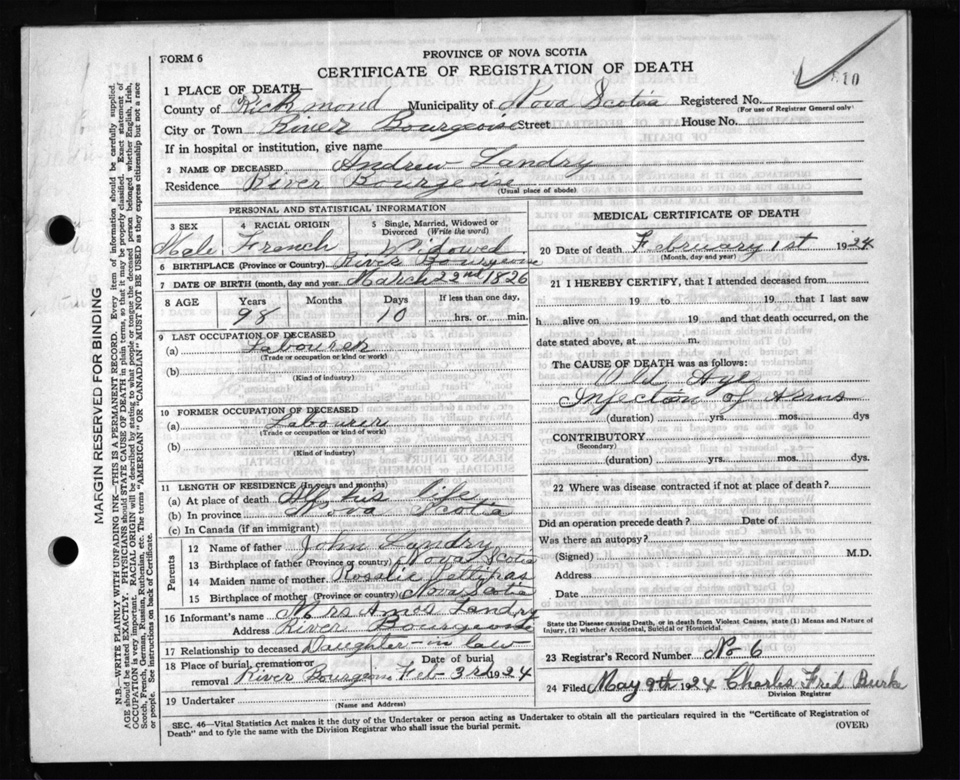 FORM 6
PROVINCE OF NOVA SCOTIA
CERTIFICATE OF REGISTRATION OF DEATH
1 PLACE OF DEATH—
County of Richmond Municipality of Nova Scotia Registered No.
(For use of Registrar General only)
City or Town River Bourgeoise Street House No.
If in hospital or institution, give name
2 NAME OF DECEASED Andrew Landry
Residence River Bourgeoise
(Usual place of abode)
PERSONAL AND STATISTICAL INFORMATION
3 SEX 4 RACIAL ORIGIN 5 Single, Married, Widowed or Divorced (Write the word)
Male French Widowed
6 BIRTHPLACE (Province or Country) River Bourgeoise
7 DATE OF BIRTH (month, day and year) March 22nd 1826
8 AGE Years Months Days If less than one day,
98 10 hrs. or min.
9 LAST OCCUPATION OF DECEASED
(a) Labourer
(Trade or occupation or kind or work)
(b)
(Kind of industry)
10 FORMER OCCUPATION OF DECEASED
(a) Labourer
(Trade or occupation or kind of work)
(b)
(Kind of industry)
11 LENGTH OF RESIDENCE (In years and months)
(a) At place of death All his life
(b) In province Nova Scotia
(c) In Canada (if an immigrant)
Parents
12 Name of father John Landry
13 Birthplace of father (Province or country) Nova Scotia
14 Maiden name of mother Rosalie
15 Birthplace of mother (Province or country) Nova Scotia
16 Informant's name Mrs Landry
Address River Bourgeoise
17 Relationship to deceased Daughter-in law
18 Place of burial, cremation or removal River Bourgeoise Date of burial Feb 3rd 1924
19 Undertaker
(Name and Address)
MEDICAL CERTIFICATE OF DEATH
20 Date of death February 1st 1924
(Month, day and year)
21 I HEREBY CERTIFY, that I attended deceased from
19 to 19 that I last saw
h alive on 19 and that death occurred, on the
date stated above, at m.
The CAUSE OF DEATH was as follows:
Old Age
Injection of Arms
(duration) yrs. mos. dys
CONTRIBUTORY
(Secondary)
(duration) yrs. mos. dys.
22 Where was disease contracted if not at place of death?
Did an operation precede death? Date of
Was there an autopsy?
(Signed) M.D.
Address
Date
State the Disease causing Death, or in death from Violent Causes, state (1) Means and Nature of
Injury, (2) whether Accidental, Suicidal or Homicidal.
23 Registrar's Record Number No 6
24 Filed May 9th 1924 Charles Fred Burke
Division Registrar
SEC. 46—Vital Statistics Act makes it duty of the Undertaker or person acting as Undertaker to obtain all the particulars required in the "Certificate of Registration of
Death" and to fyle the same with the Division Registrar who shall issue the burial permit.
(OVER)
MARGIN RESERVED FOR BINDING
N.B.—WRITE PLAINLY WITH UNFADING INK—THIS IS A PERMANENT RECORD. Every item of information should be carefully supplied.
AGE should be stated EXACTLY. PHYSICIANS should STATE CAUSE OF DEATH in plain terms, so that it may be properly classified. Exact statement of
OCCUPATION is very important. RACIAL ORIGIN will be described by stating to what people or tongue the deceased person belonged whether English, Irish,
Scotch, French, German, Russian, Ruthenian, etc. The terms "AMERICAN" OR "CANADIAN" MUST NOT BE USED as they express citizenship but not a race
or people. See instructions on back of Certificate.